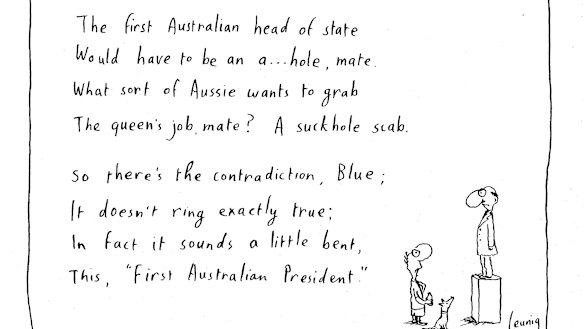 The first Australian head of state
Would have to be an a...hole, mate.
What sort of Aussie wants to grab
The queen's job, mate? A suckhole scab.
So there's the contradiction, Blue;
It doesn't ring exactly true;
In fact it sounds a little bent,
This, "First Australian President."
Leunig